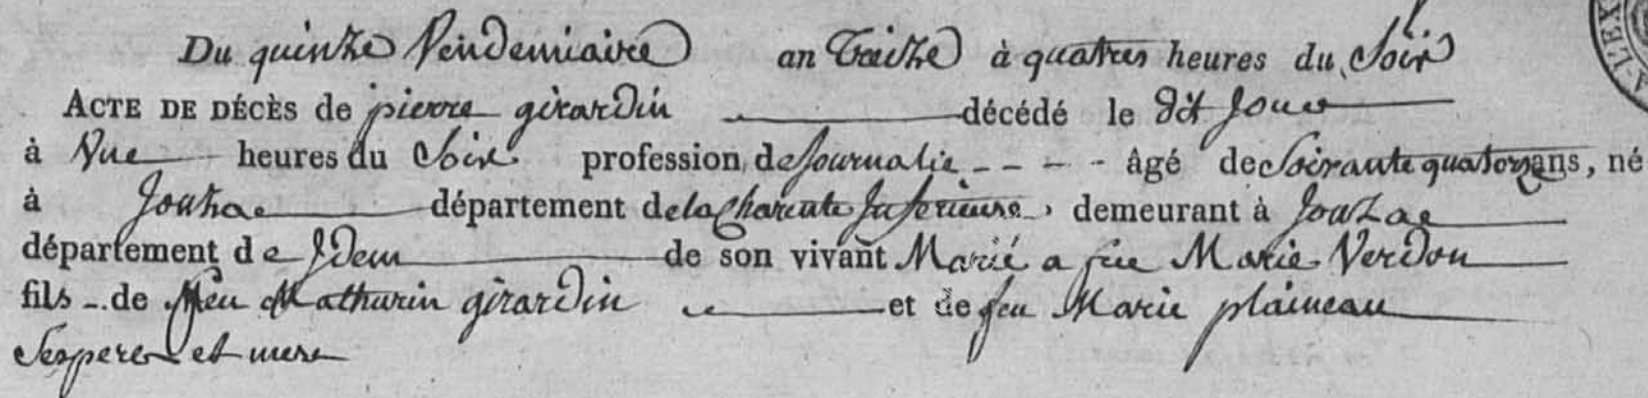 Du quinze Vendemiaire an Treize à quatres heures du Soir
ACTE DE DÉCÈS de pierre girardin décédé le dit Jour
à Une heures du Soir profession de Journalie - - - - âgé de Soixante quatorze ans, né
à Jonzac département de la Charente Inferieure, demeurant à Jonzac
département de Idem de son vivant Marié a feue Marie Verdon
fils - de feu Mathurin girardin et de feu Marie plaineau
Ses pere et mere
A-L'EX